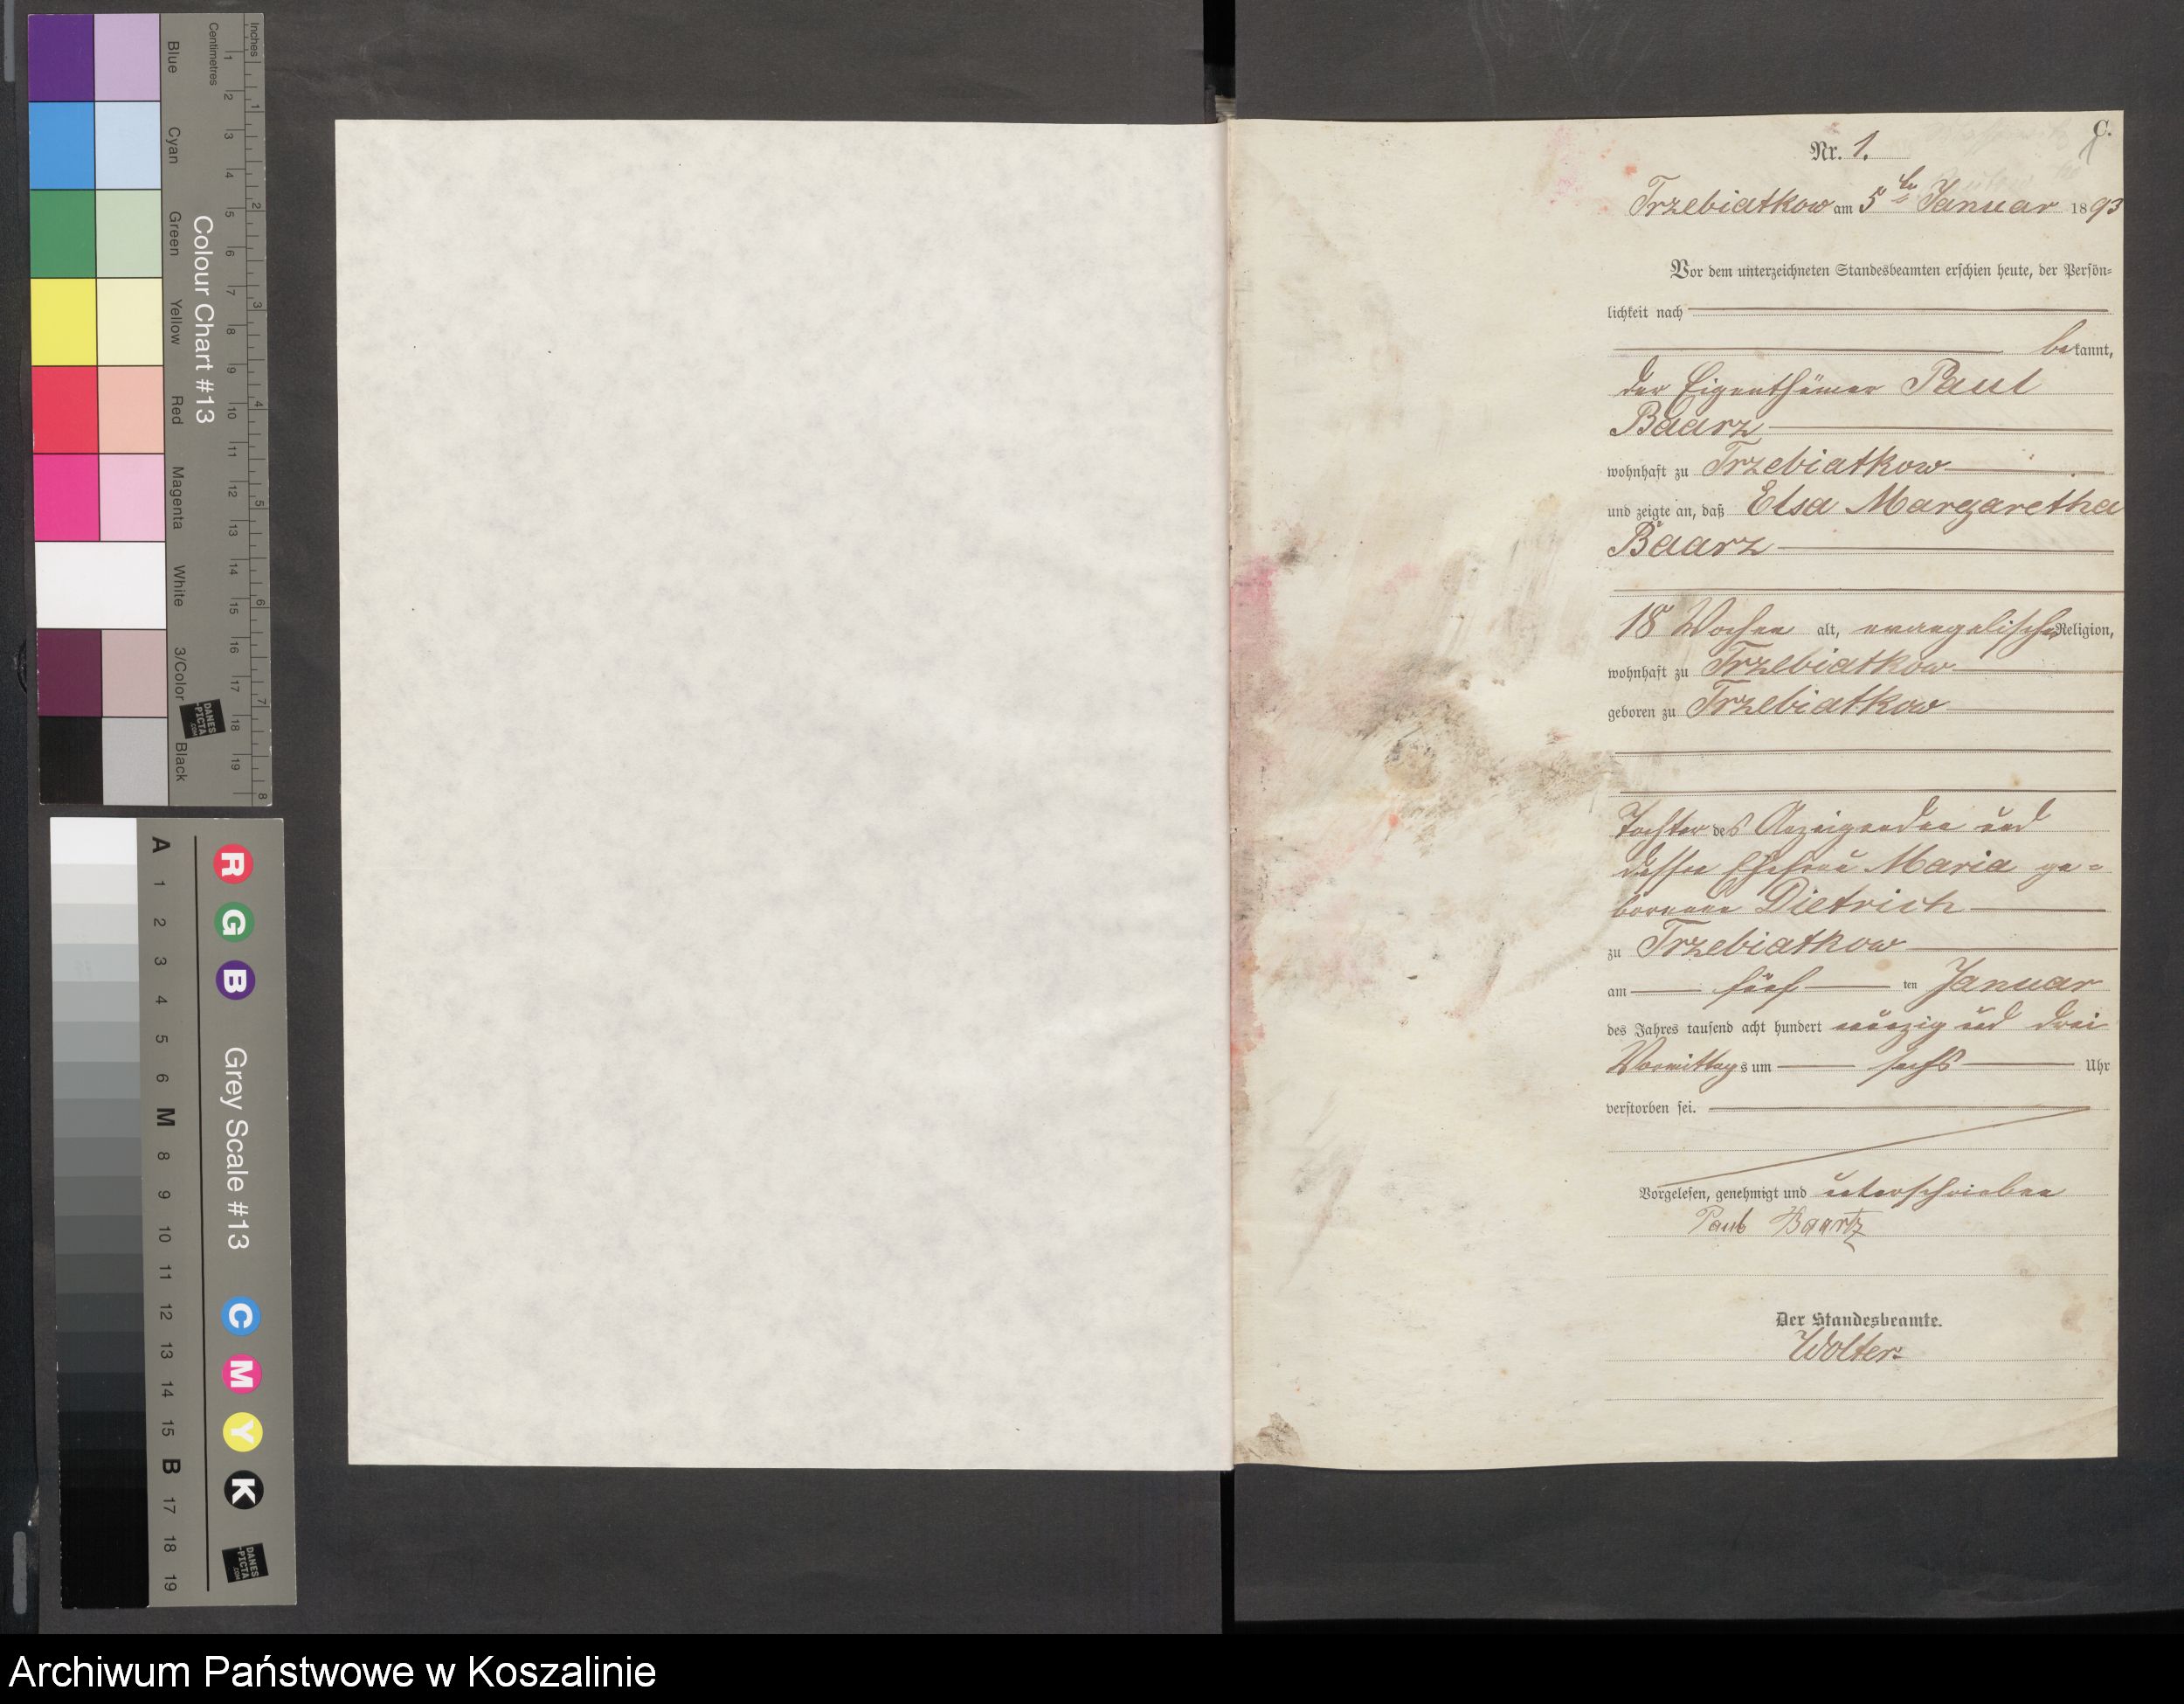 C.
Nr. 1.
Trzebiatkow am 5ten Januar 1893
Vor dem unterzeichneten Standesbeamten erschien heute, der Persön-
lichkeit nach
bekannt,
der Eigenthümer Paul
Baarz
wohnhaft zu Trzebiatkow
und zeigte an, daß Elsa Margaretha
Baarz
18 Wochen alt, evangelischer Religion,
wohnhaft zu Trzebiatkow
geboren zu Trzebiatkow
Tochter des Anzeigenden und
dessen Ehefrau Maria ge=
borenen Dietrich
zu Trzebiatkow
am fünf ten Januar
des Jahres tausend acht hundert neunzig und drei
Vormittags um sechs Uhr
verstorben sei.
Vorgelesen, genehmigt und unterschrieben
Paul Baartz
Der Standesbeamte.
Wolter.
Inches
Centimetres
1 2 3 4 5 6 7 8
1 2 3 4 5 6 7 8 9 10 11 12 13 14 15 16 17 18 19
Colour Chart #13
Blue Cyan Green Yellow Red Magenta White 3/Color Black
DANES
-PICTA
.COM
R G B Grey Scale #13 C M Y K
A 1 2 3 4 5 6 M 8 9 10 11 12 13 14 15 B 17 18 19
DANES
-PICTA
.COM
Archiwum Państwowe w Koszalinie